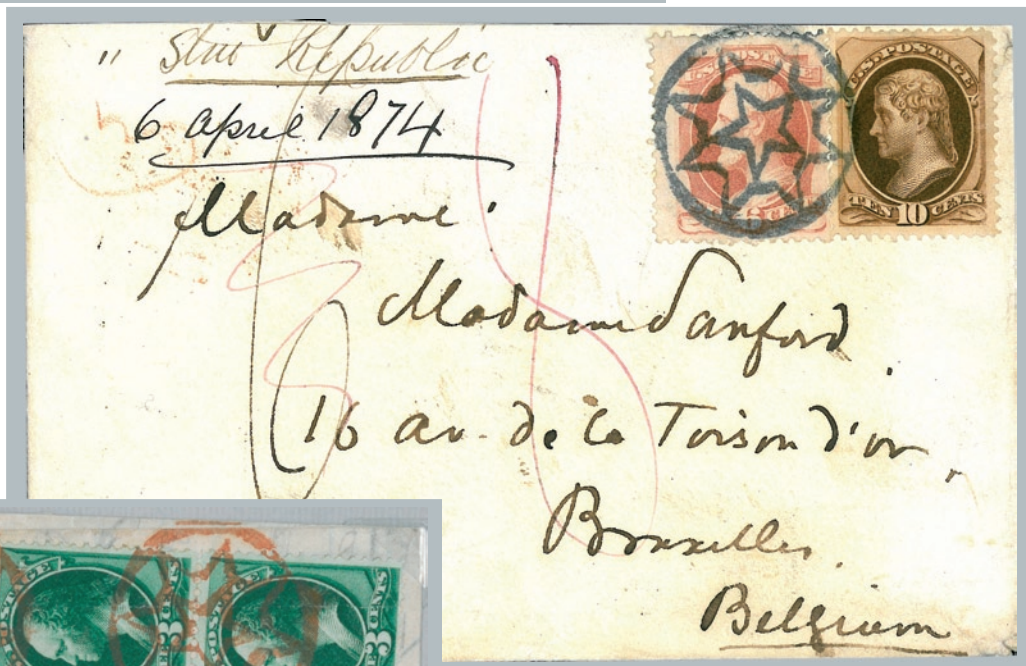 " Stmr Republic
6 april 1874
Madame
Madame Sanford
16 av. de la Toison d'or,
Bruxelles
Belgium
U.S. POSTAGE
U.S. POSTAGE
TEN 10 CENTS
POSTAGE
3
3